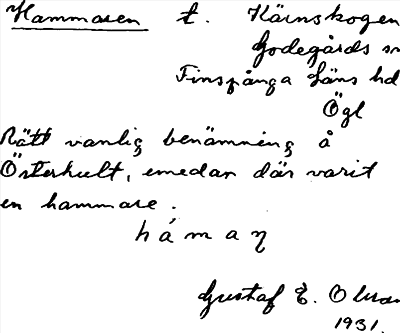 Hammaren t. Kärnskogen
Godegårds sn
Finspånga läns hd
Ögl
Rätt vanlig benämning å
Österhult, emedan där varit
en hammare.
hámaꞑ
Gustaf E. Olsson
1931.